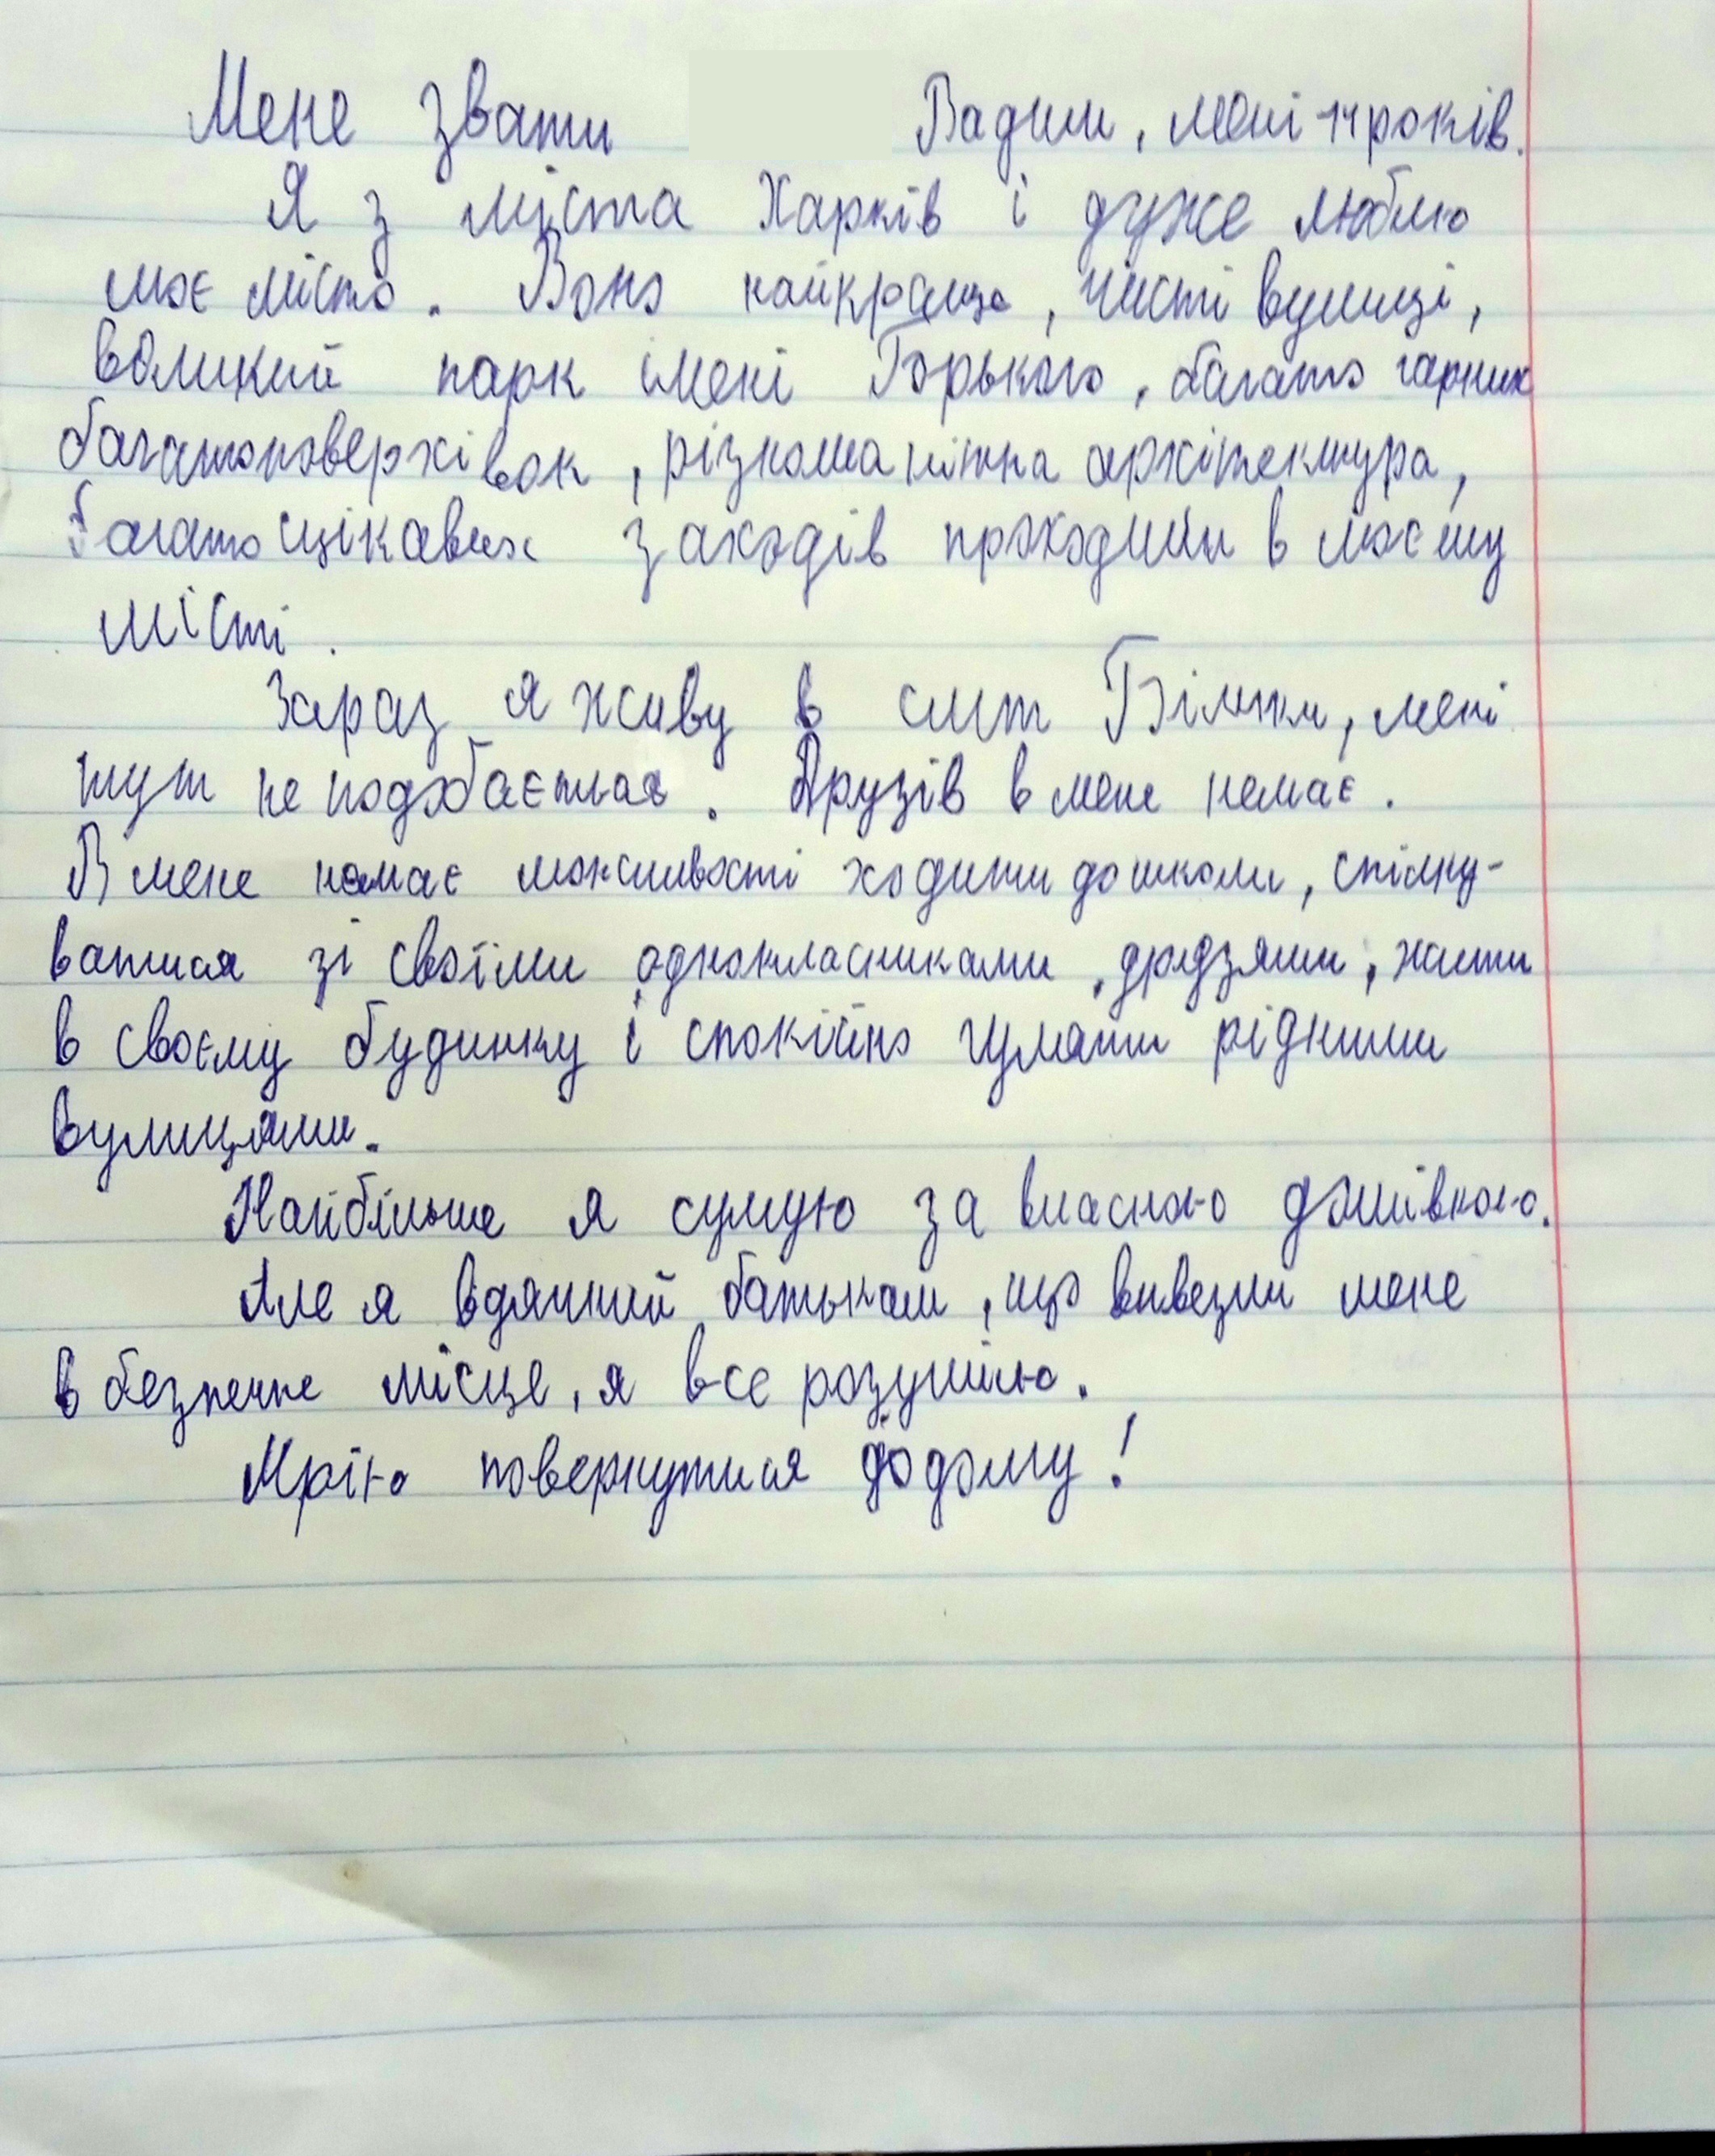 Мене звати Вадим, мені 14 років.
Я з міста Харків і дуже люблю
моє місто. Воно найкраще, чисті вулиці,
великий парк імені Горького, багато гарних
багатоповерхівок, різноманітна архітектура,
багато цікавих заходів проходили в моєму
місті.
Зараз я живу в смт Білики, мені
тут не подобається. Друзів в мене немає.
В мене немає можливості ходити до школи, спілку-
ватися зі своїми однокласниками, друзями, жити
в своєму будинку і спокійно гуляти рідними
вулицями.
Найбільше я сумую за власною домівкою.
Але я вдячний батькам, що вивезли мене
в безпечне місце, я все розумію.
Мрію повернутися додому!